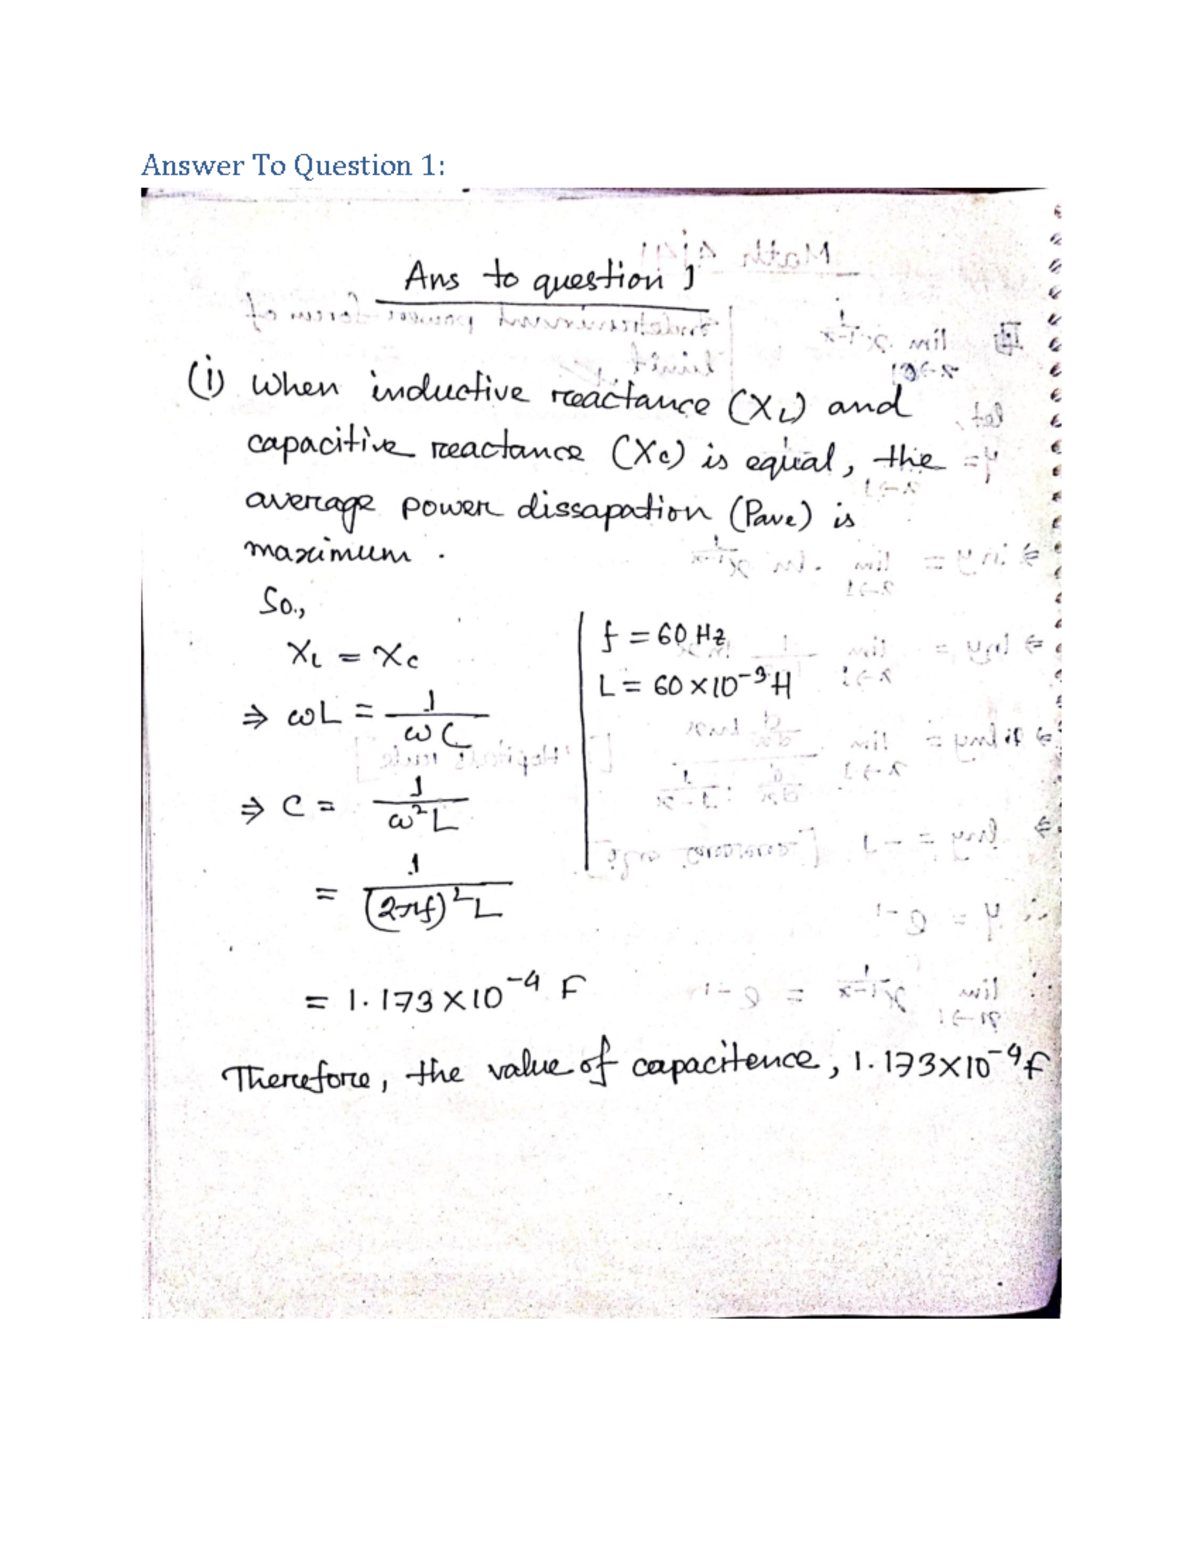 Answer To Question 1:
Ans to question 1
(i) When inductive reactance (X_L) and
capacitive reactance (X_C) is equal, the
average power dissapation (Pave) is
maximum.
So,
X_L = X_C
⇒ ωL = 1/ωC
⇒ C = 1/ω²L
= 1/(2πf)²L
= 1.173×10⁻⁴ F
f = 60 Hz
L = 60×10⁻³ H
Therefore, the value of capacitence, 1.173×10⁻⁴ F